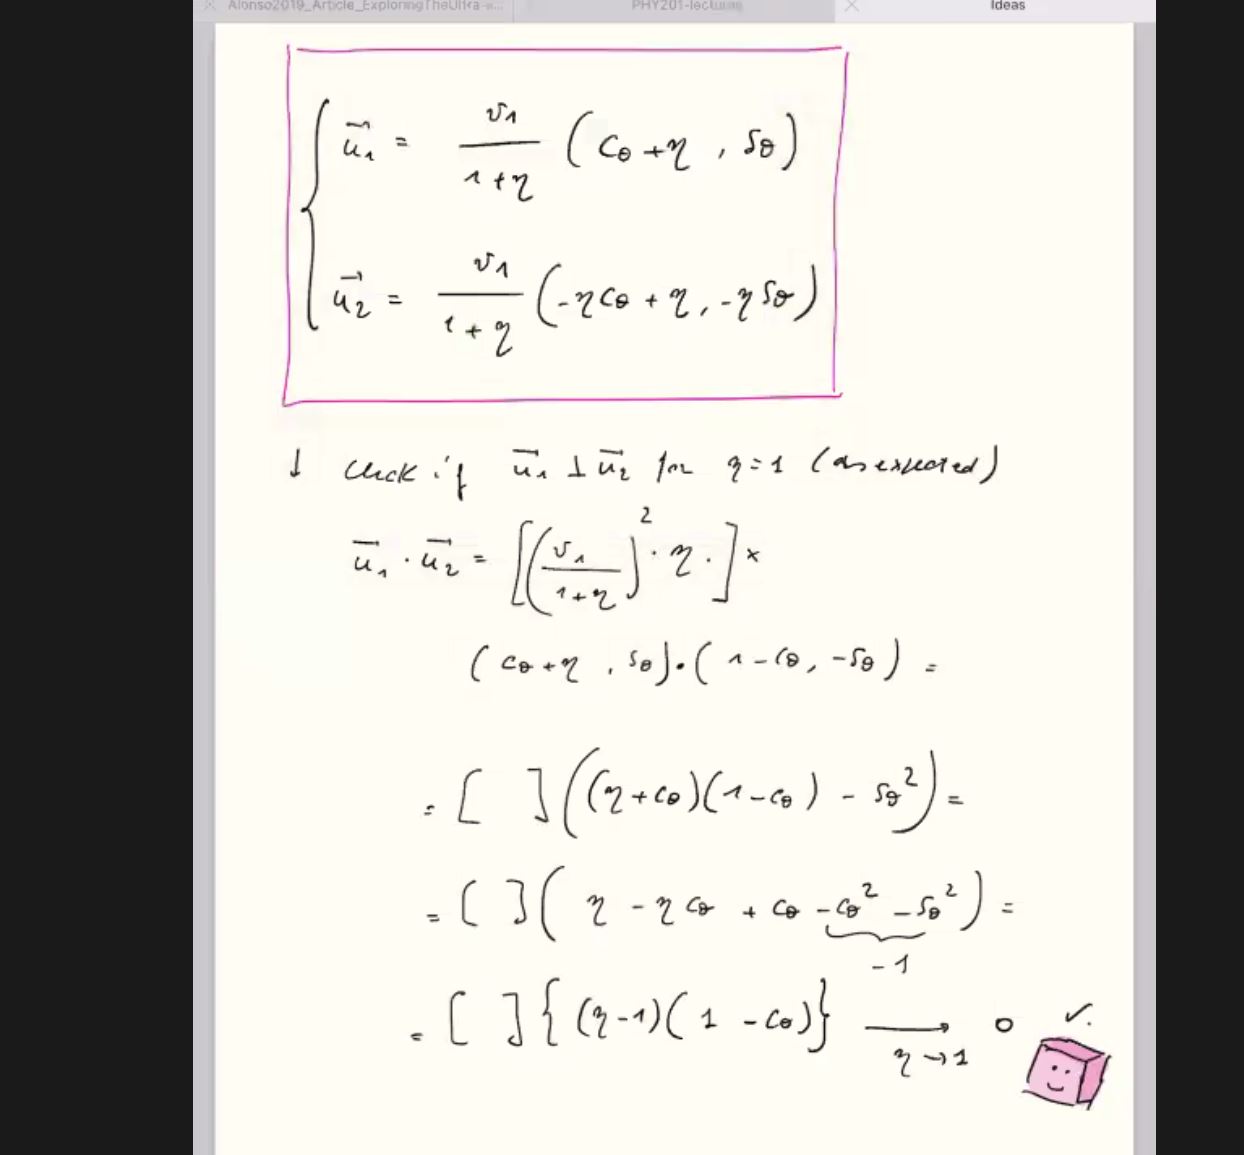 Alonso2019_Article_ExploringTheUltra-...
PHY201-lectures
Ideas
u⃗₁ = v₁/(1+η) (cθ + η , sθ)
u⃗₂ = v₁/(1+η) (-η cθ + η , -η sθ)
↓ check if u⃗₁ ⊥ u⃗₂ for η = 1 (as expected)
u⃗₁ · u⃗₂ = [(v₁/(1+η))² · η ·] ×
(cθ + η , sθ) · (1 - cθ , -sθ) =
= [ ] ((η + cθ)(1 - cθ) - sθ²) =
= [ ] ( η - η cθ + cθ - cθ² - sθ² ) =
-1
= [ ] { (η-1)( 1 - cθ) } ⟶ 0 ✓.
η → 1